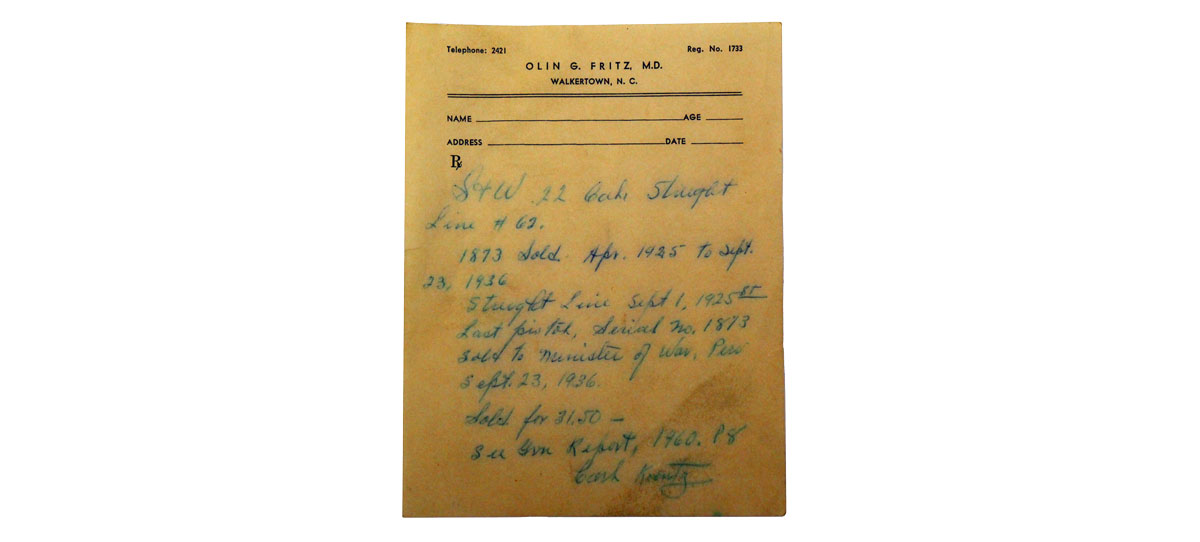 Telephone: 2421 Reg. No. 1733
OLIN G. FRITZ, M.D.
WALKERTOWN, N. C.
NAME AGE
ADDRESS DATE
℞
S & W .22 Straight
Line # 62.
1873 Sold. Apr. 1925 to Sept.
23, 1936
Straight Line Sept 1, 1925 st
Last pistol, Serial No. 1873
sold to Minister of War, Peru
Sept. 23, 1936.
Sold for 31.50 —
See Gun Report, 1960. P8